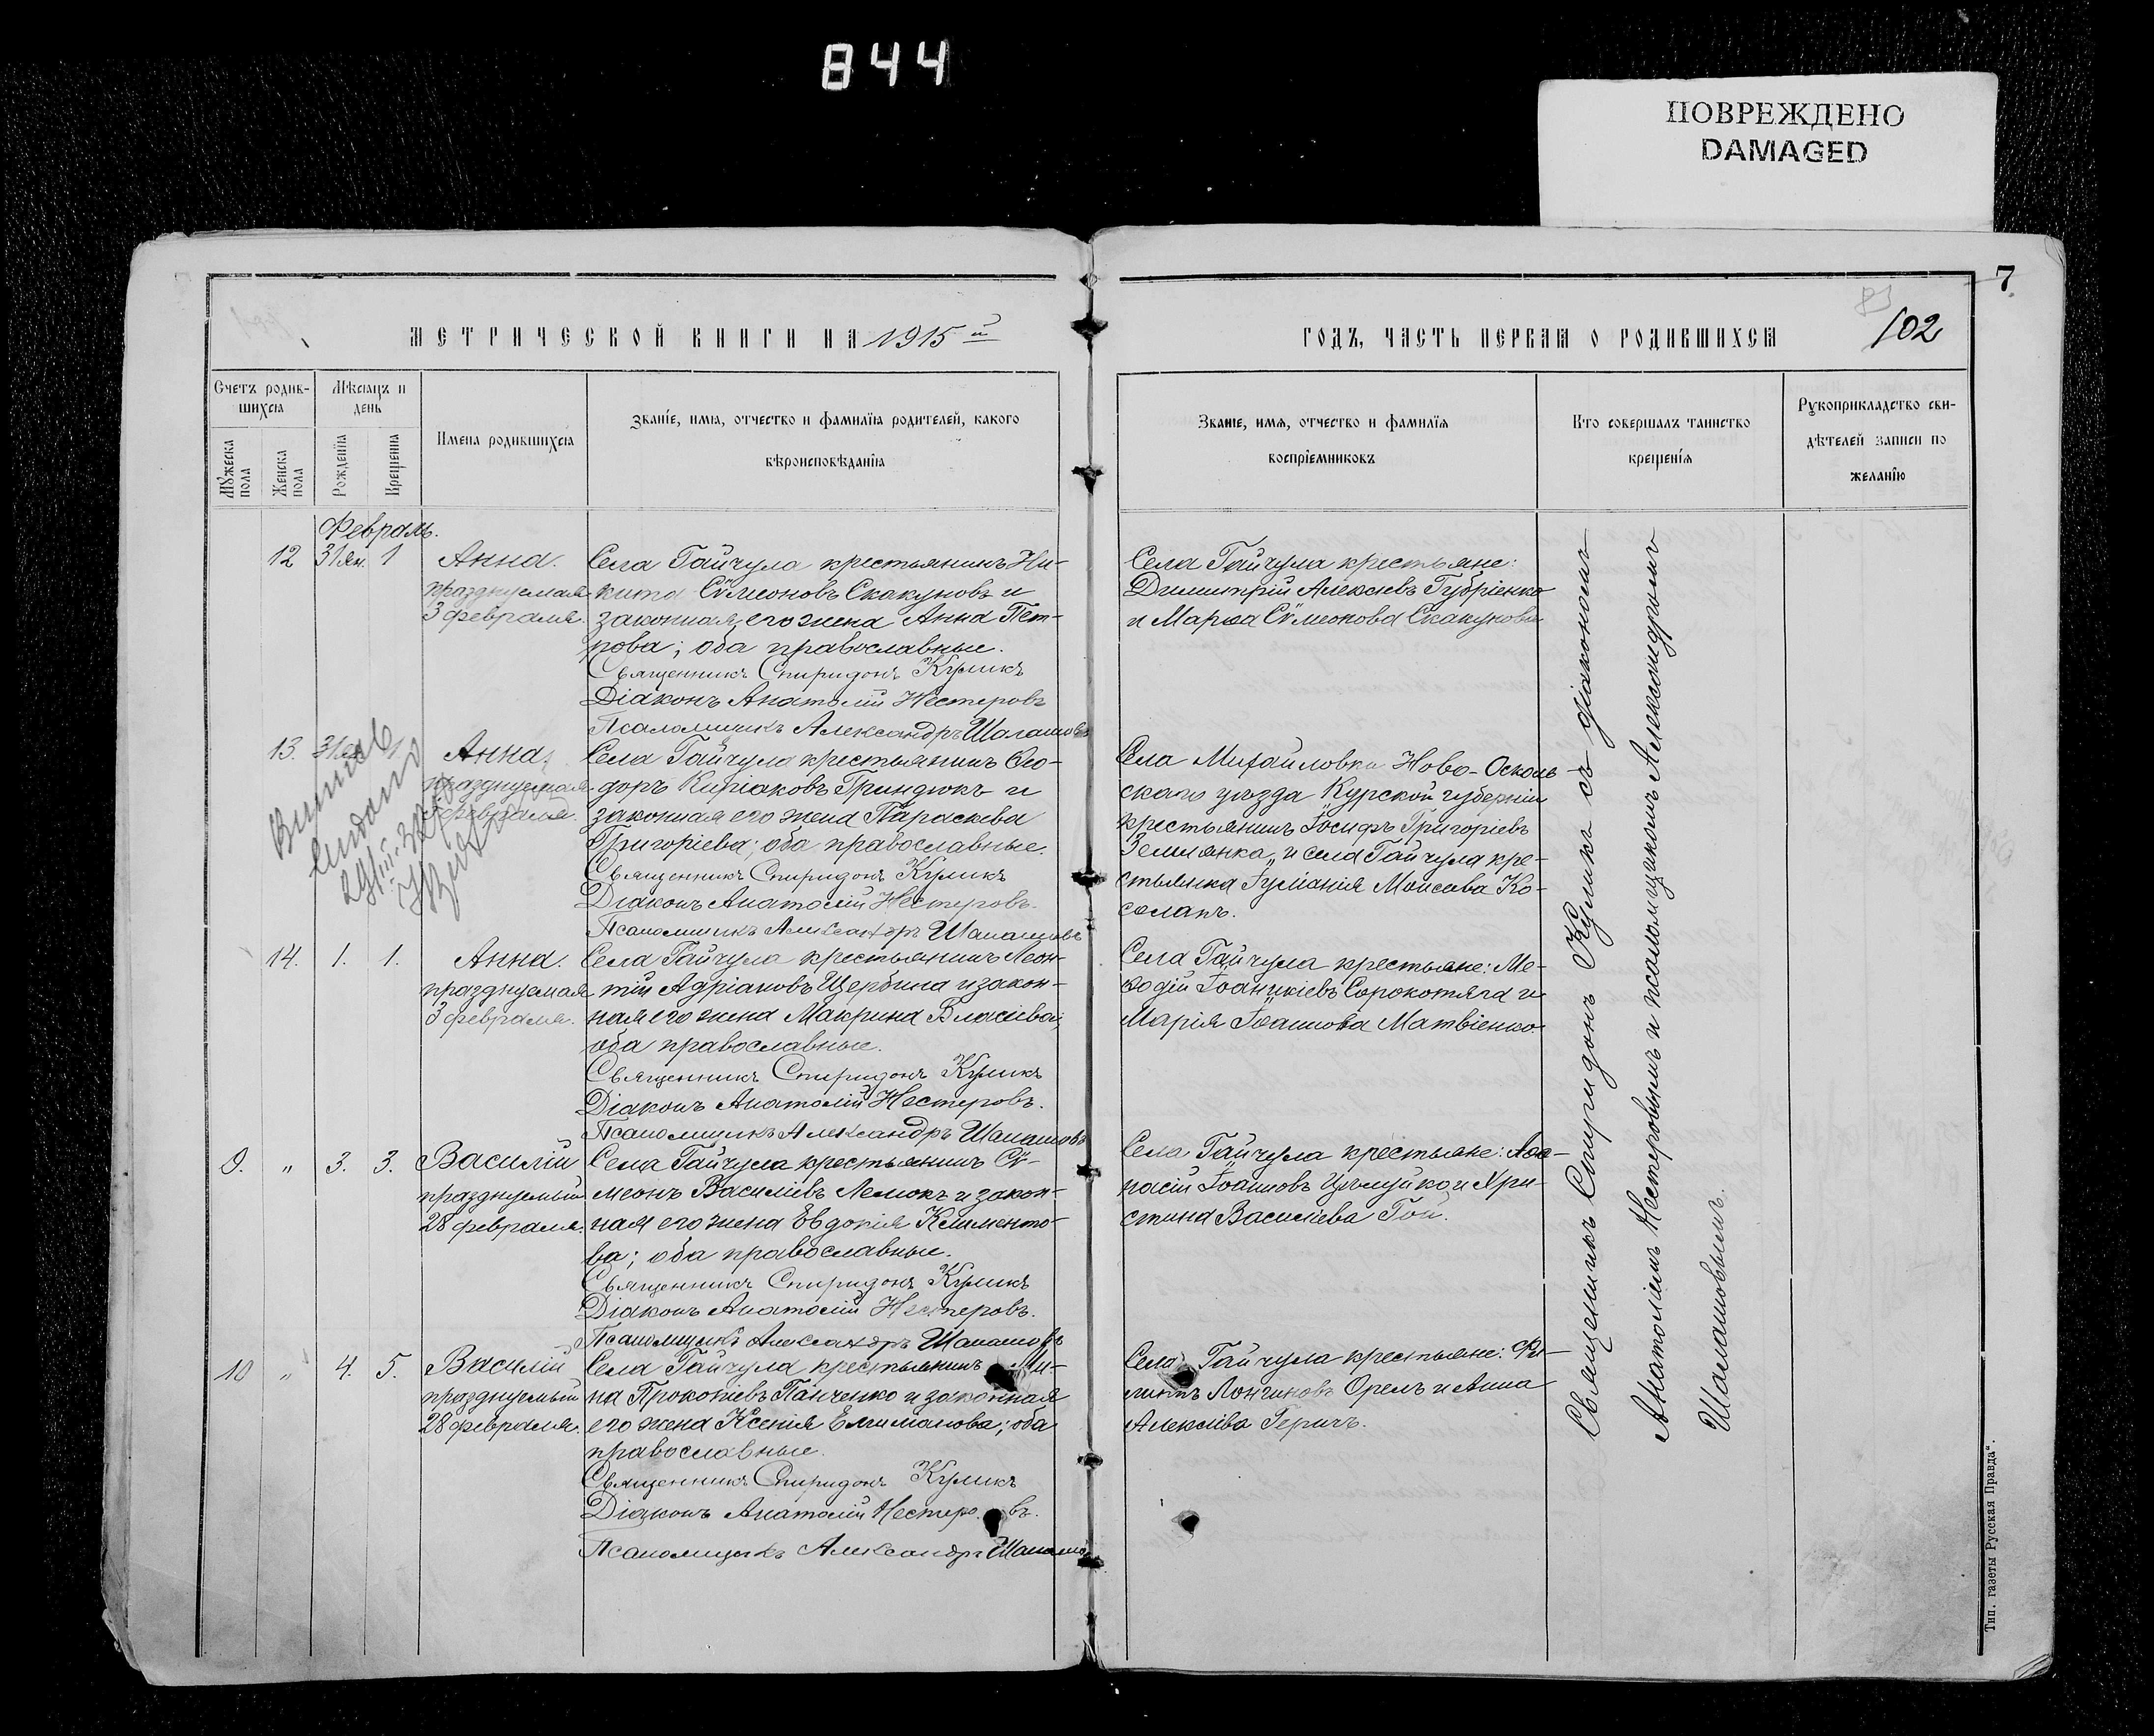 844
ПОВРЕЖДЕНО
DAMAGED
7
102
МЕТРИЧЕСКОЙ КНИГИ НА 1915 й
ГОДЪ, ЧАСТЬ ПЕРВАЯ О РОДИВШИХСЯ
Счетъ родив-
шихся
Мѣсяцъ и
день
Мужеска
пола
Женска
пола
Рожденїя
Крещенїя
Имена родившихся
Званїе, имя, отчество и фамилїя родителей, какого
вѣроисповѣданїя
Званїе, имя, отчество и фамилїя
воспрїемниковъ
Кто совершалъ таинство
крещенїя
Рукоприкладство сви-
дѣтелей записи по
желанїю
Февраль.
12 31 ян. 1 Анна.
празднуемая
3 февраля.
Села Гайчула крестьянинъ Ни-
кита Сѵмеоновъ Скакуновъ и
законная его жена Анна Пет-
рова; оба православные.
Священникъ Спиридонъ Куликъ
Діаконъ Анатолій Нестеровъ
Псаломщикъ Александръ Шалашовъ
Села Гайчула крестьяне:
Димитрій Алексѣевъ Губріенко
и Марѳа Сѵмеонова Скакунова
13. 31 ян. 1 Анна,
празднуемая
3 февраля.
Села Гайчула крестьянинъ Ѳео-
доръ Киріаковъ Гриндюкъ и
законная его жена Параскева
Григоріева; оба православные.
Священникъ Спиридонъ Куликъ
Діаконъ Анатолій Нестеровъ.
Псаломщикъ Александръ Шалашовъ
Села Михайловки Ново-Осколь-
скаго уѣзда Курской губерніи
крестьянинъ Іосифъ Григоріевъ
Землянка, и села Гайчула кре-
стьянка Іуліанія Моисеева Ко-
солапъ.
14. 1. 1. Анна.
празднуемая
3 февраля.
Села Гайчула крестьянинъ Леон-
тій Адріановъ Щербина и закон-
ная его жена Макрина Власіева;
оба православные.
Священникъ Спиридонъ Куликъ
Діаконъ Анатолій Нестеровъ.
Псаломщикъ Александръ Шалашовъ
Села Гайчула крестьяне: Ме-
ѳодій Іоанникіевъ Сорокотяга и
Марія Іоаннова Матвіенко
9. „ 3. 3. Василій
празднуемый
28 февраля.
Села Гайчула крестьянинъ Сѵ-
меонъ Василіевъ Лемокъ и закон-
ная его жена Евдокія Клименто-
ва; оба православные.
Священникъ Спиридонъ Куликъ
Діаконъ Анатолій Нестеровъ.
Псаломщикъ Александръ Шалашовъ
Села Гайчула крестьяне: Аѳа-
насій Іоанновъ Цыцуйко и Хри-
стина Василіева Гой.
10 „ 4. 5. Василій
празднуемый
28 февраля.
Села Гайчула крестьянинъ Ми-
на Прокопіевъ Панченко и законная
его жена Ксенія Елимапова; оба
православные.
Священникъ Спиридонъ Куликъ
Діаконъ Анатолій Нестеровъ.
Псаломщикъ Александръ Шалашо
Села Гайчула крестьяне: Фи-
липпъ Лонгиновъ Орелъ и Анна
Алексіева Геричъ.
Священникъ Спиридонъ Куликъ съ діакономъ
Анатоліемъ Нестеровымъ и псаломщикомъ Александромъ
Шалашовымъ.
Выпись
выдана
29/III
Тип. газеты Русская Правда“.